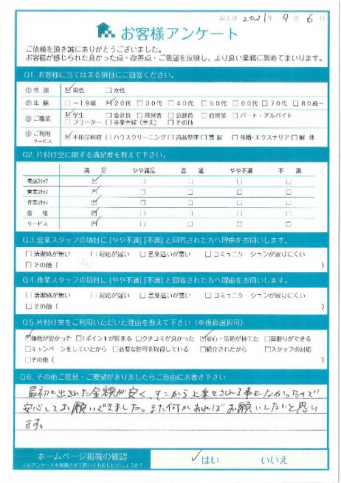 記入日 2021年 9月 6日
お客様アンケート
ご依頼を頂き誠にありがとうございました。
お客様が感じられた良かった点・改善点・ご要望を反映し、より良い業務に努めてまいります。
Q1. お客様に当てはまる項目にご回答ください。
① 性別 ☑男性 □女性
② 年齢 □~19歳 ☑20代 □30代 □40代 □50代 □60代 □70代 □80歳~
③ ご職業 ☑学生 □会社員 □経営者 □公務員 □自営業 □パート・アルバイト
□フリーター □専業主婦(主夫) □その他
④ ご利用サービス ☑不用品回収 □ハウスクリーニング □遺品整理 □買取 □外構・エクステリア □解体
Q2. 片付け堂に関する満足度を教えて下さい。
満足 やや満足 普通 やや不満 不満
電話スタッフ ☑ □ □ □ □
営業スタッフ ☑ □ □ □ □
作業スタッフ ☑ □ □ □ □
価格 ☑ □ □ □ □
サービス ☑ □ □ □ □
Q3. 営業スタッフの項目に [やや不満] [不満] と回答された方へ理由をお伺いします。
□清潔感が無い □対応が遅い □言葉遣いが悪い □コミュニケーションが取りにくい
□その他 (
Q4. 作業スタッフの項目に [やや不満] [不満] と回答された方へ理由をお伺いします。
□清潔感が無い □対応が遅い □言葉遣いが悪い □コミュニケーションが取りにくい
□その他 (
Q5. 片付け堂をご利用いただいた理由を教えて下さい (※複数選択可)
☑価格が安かった □Tポイントが貯まる □クチコミが良かった ☑安心・信頼が持てた □買取りができる
□キャンペーンをしていたから □必要な許可を取得している □紹介されたから □スタッフの対応
□その他 (
Q6. その他ご意見・ご要望がありましたらご自由にお書き下さい
最初に出された金額が安く、そこから上乗せされる事もなかったので
安心してお願いできました。また何かあればお願いしたいと思い
ます。
ホームページ掲載の確認
✓はい いいえ